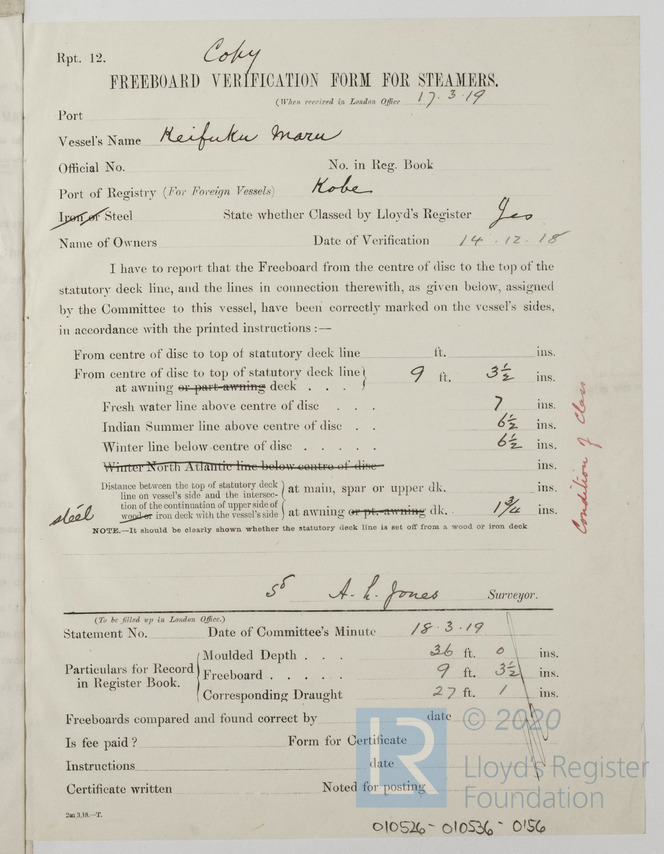 Rpt. 12. Copy
FREEBOARD VERIFICATION FORM FOR STEAMERS.
(When received in London Office 17.3.19
Port
Vessel's Name Keifuku Maru
Official No. No. in Reg. Book
Port of Registry (For Foreign Vessels) Kobe
Iron or Steel State whether Classed by Lloyd's Register Yes
Name of Owners Date of Verification 14.12.18
I have to report that the Freeboard from the centre of disc to the top of the
statutory deck line, and the lines in connection therewith, as given below, assigned
by the Committee to this vessel, have been correctly marked on the vessel's sides,
in accordance with the printed instructions :—
From centre of disc to top of statutory deck line ft. ins.
From centre of disc to top of statutory deck line
at awning or part awning deck . . . 9 ft. 3½ ins.
Fresh water line above centre of disc . . . 7 ins.
Indian Summer line above centre of disc . . 6½ ins.
Winter line below centre of disc . . . . . 6½ ins.
Winter North Atlantic line below centre of disc ins.
Distance between the top of statutory deck
line on vessel's side and the intersec-
tion of the continuation of upper side of
wood or iron deck with the vessel's side
steel
at main, spar or upper dk. ins.
at awning or pt. awning dk. 1¾ ins.
Condition of Class
NOTE.—It should be clearly shown whether the statutory deck line is set off from a wood or iron deck
A. L. Jones Surveyor.
(To be filled up in London Office.)
Statement No. Date of Committee's Minute 18.3.19
Particulars for Record
in Register Book.
Moulded Depth . . . 36 ft. 0 ins.
Freeboard . . . . . 9 ft. 3½ ins.
Corresponding Draught 27 ft. 1 ins.
Freeboards compared and found correct by date
Is fee paid ? Form for Certificate
Instructions date
Certificate written Noted for posting
2m 3,18.—T.
LR © 2020
Lloyd's Register
Foundation
010526-010536-0156